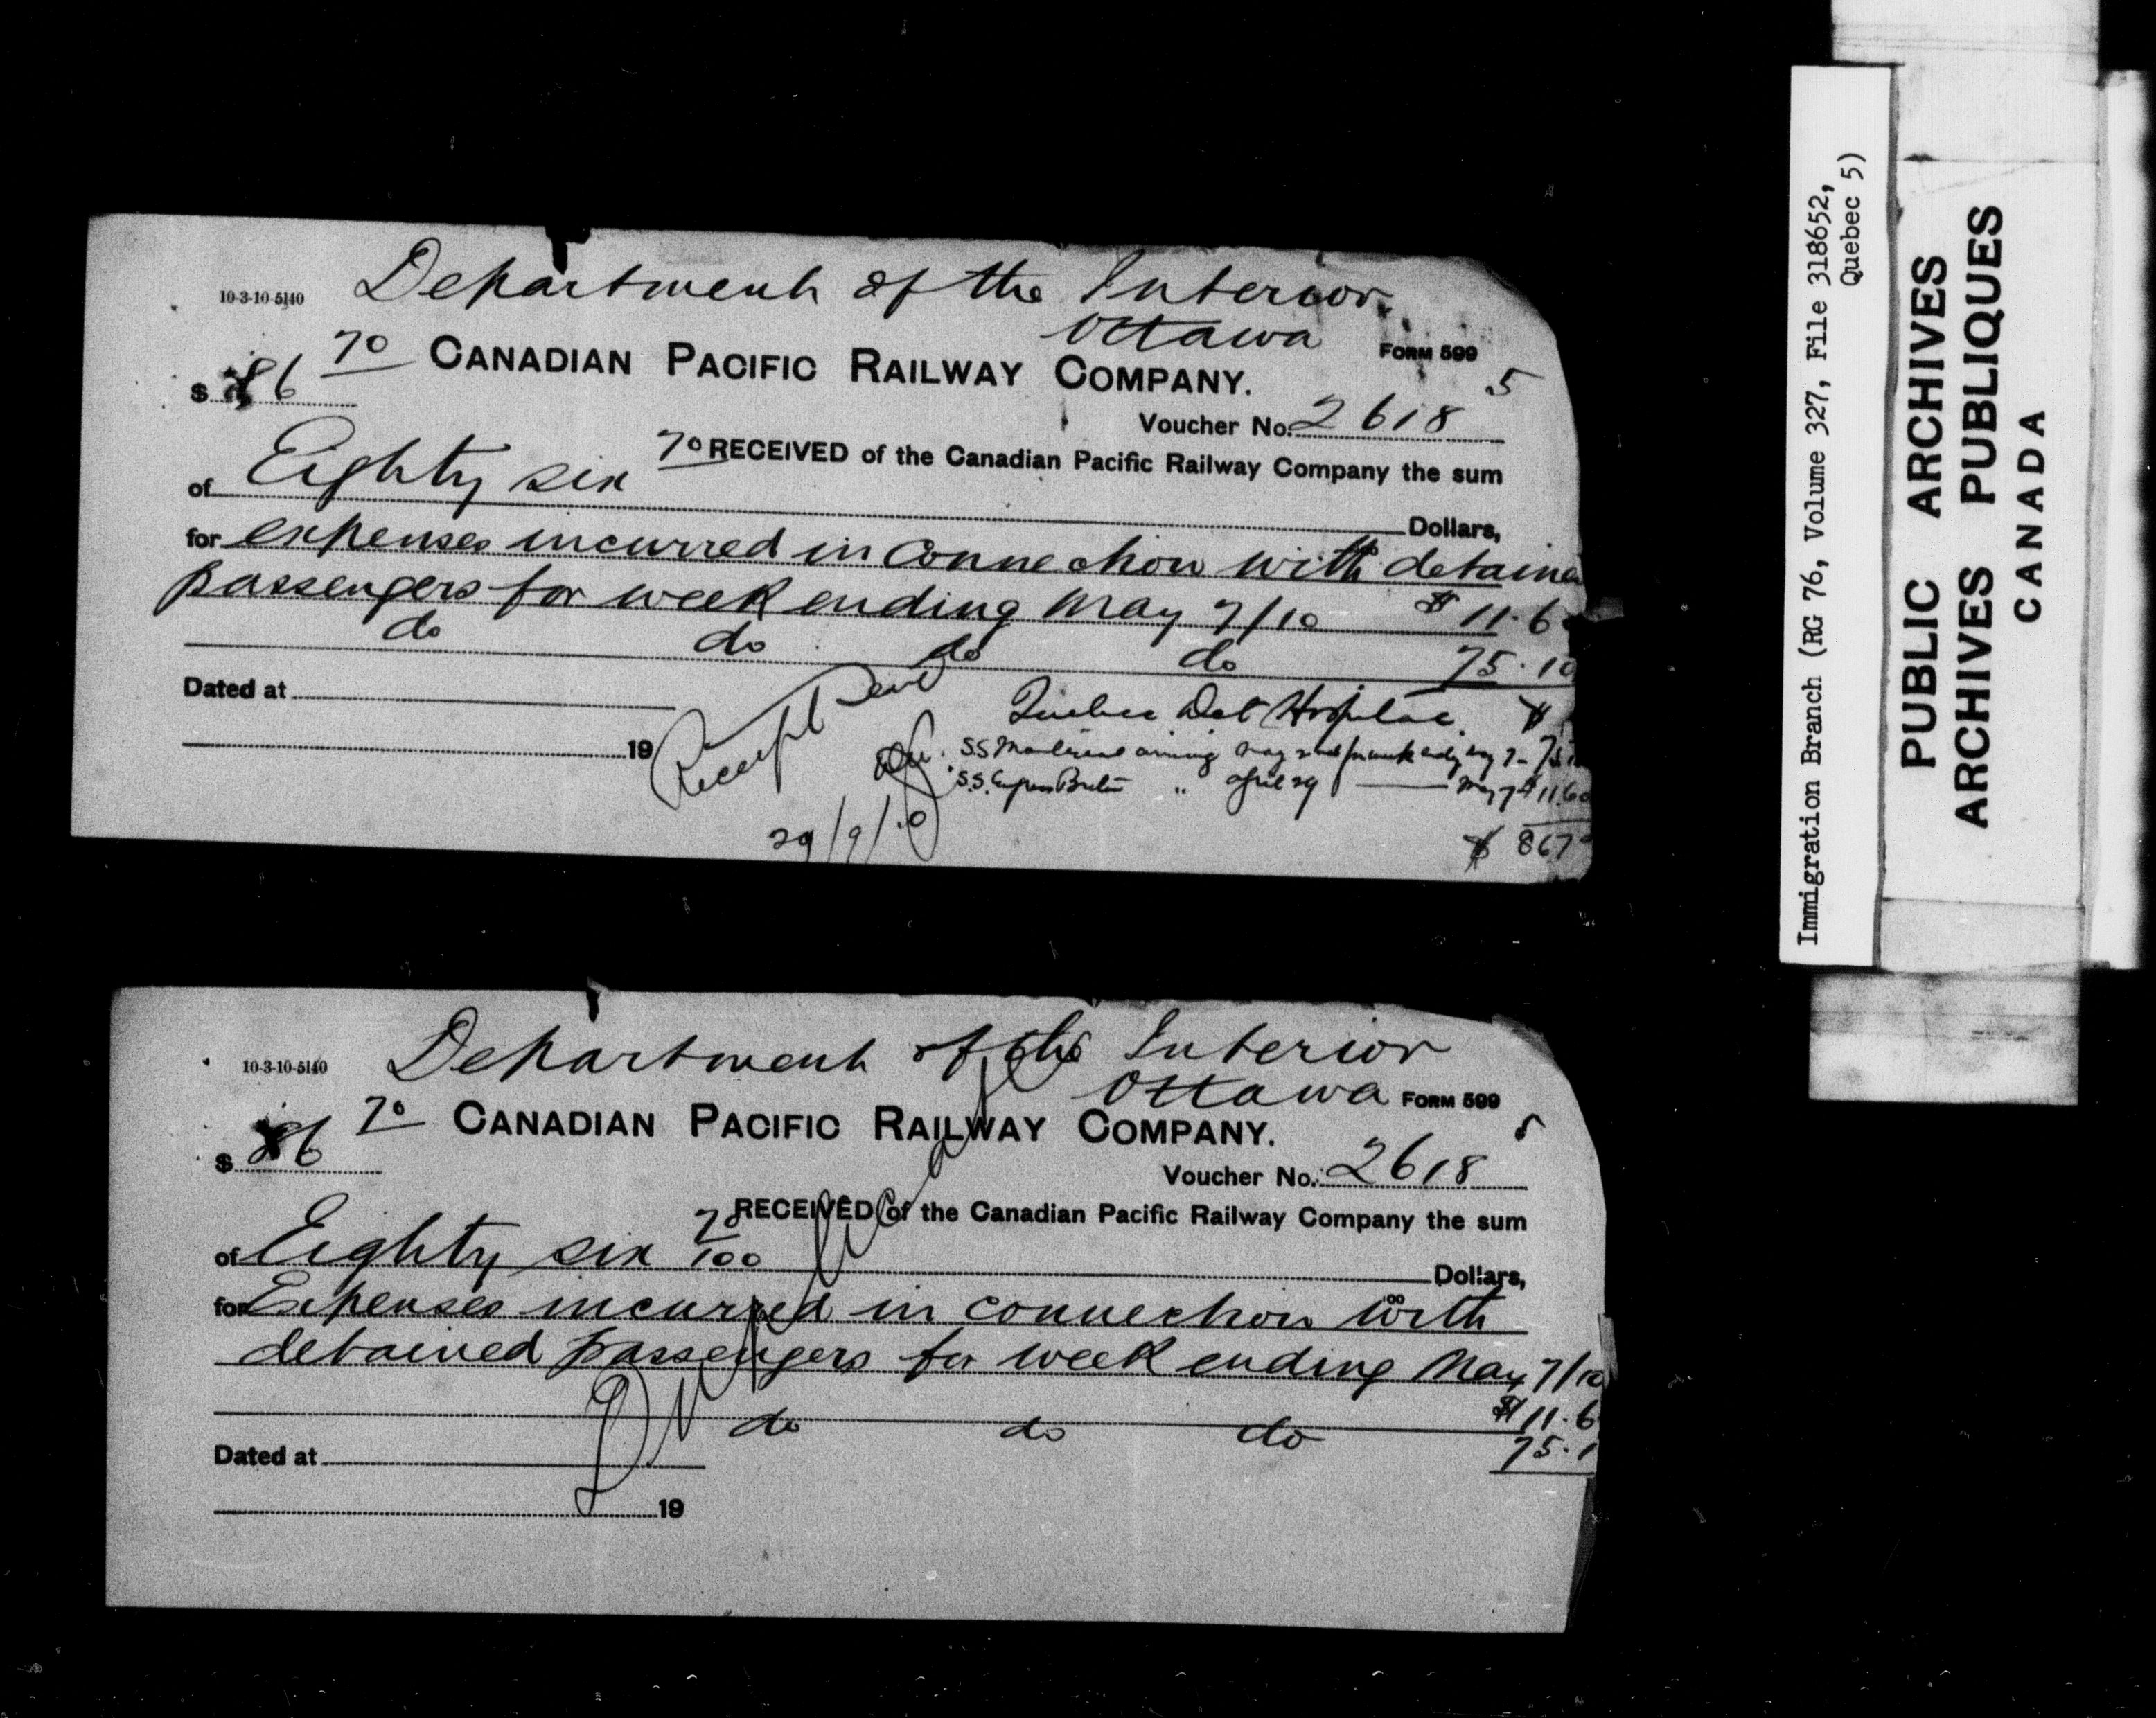 10-3-10-5140
Department of the Interior
Ottawa
FORM 599
$ 86 70 CANADIAN PACIFIC RAILWAY COMPANY.
5
Voucher No. 2618
70 RECEIVED of the Canadian Pacific Railway Company the sum
of Eighty six Dollars,
for expenses incurred in connection with detaine
passengers for week ending May 7/10 $ 11.6
do do do do 75.10
Dated at
19
Receipt Sent
Quebec Det Hospital $
S.S Montreal arriving May 2nd for week endg May 7
S.S. Empress Britn " April 29 May 7 $ 11.60
29/9/10
$ 867
10-3-10-5140
Department of the Interior
Ottawa
FORM 599
$ 86 70 CANADIAN PACIFIC RAILWAY COMPANY.
5
Voucher No. 2618
RECEIVED of the Canadian Pacific Railway Company the sum
of Eighty six 70/100 Dollars,
for Expenses incurred in connection with
detained passengers for week ending May 7/10
$ 11.6
do do do 75.1
Dated at
19
Duplicate
Immigration Branch (RG 76, Volume 327, File 318652,
Quebec 5)
PUBLIC ARCHIVES
ARCHIVES PUBLIQUES
CANADA